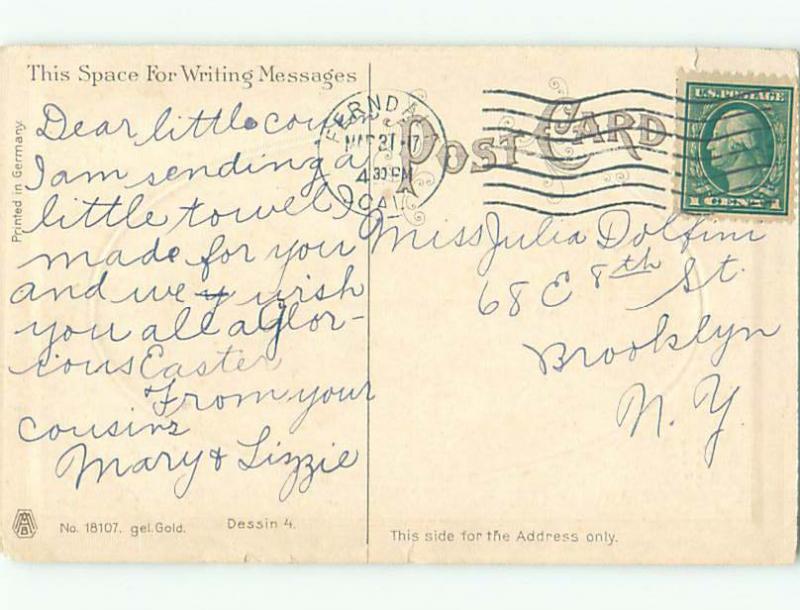 This Space For Writing Messages
Printed in Germany.
Dear little cou
I am sending a
little towel I
made for you
and we wish
you all a glor-
ious Easter
From your
cousins
Mary & Lizzie
No. 18107. gel. Gold. Dessin 4.
FERNDA
MAR 27 17
4 30 PM
CAL
POST CARD
U.S. POSTAGE
1 CENT 1
Miss Julia Dolfini
68 E 8th St.
Brooklyn
N. Y.
This side for the Address only.